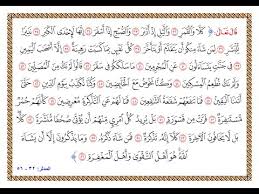 قَالَ تَعَالَى: ﴿ كَلَّا وَالْقَمَرِ ﴿٣٢﴾ وَاللَّيْلِ إِذْ أَدْبَرَ ﴿٣٣﴾ وَالصُّبْحِ إِذَا أَسْفَرَ ﴿٣٤﴾ إِنَّهَا لَإِحْدَى الْكُبَرِ ﴿٣٥﴾ نَذِيرًا
لِّلْبَشَرِ ﴿٣٦﴾ لِمَن شَاءَ مِنكُمْ أَن يَتَقَدَّمَ أَوْ يَتَأَخَّرَ ﴿٣٧﴾ كُلُّ نَفْسٍ بِمَا كَسَبَتْ رَهِينَةٌ ﴿٣٨﴾ إِلَّا أَصْحَابَ الْيَمِينِ
﴿٣٩﴾ فِي جَنَّاتٍ يَتَسَاءَلُونَ ﴿٤٠﴾ عَنِ الْمُجْرِمِينَ ﴿٤١﴾ مَا سَلَكَكُمْ فِي سَقَرَ ﴿٤٢﴾ قَالُوا لَمْ نَكُ مِنَ الْمُصَلِّينَ
﴿٤٣﴾ وَلَمْ نَكُ نُطْعِمُ الْمِسْكِينَ ﴿٤٤﴾ وَكُنَّا نَخُوضُ مَعَ الْخَائِضِينَ ﴿٤٥﴾ وَكُنَّا نُكَذِّبُ بِيَوْمِ الدِّينِ ﴿٤٦﴾ حَتَّى
أَتَانَا الْيَقِينُ ﴿٤٧﴾ فَمَا تَنفَعُهُمْ شَفَاعَةُ الشَّافِعِينَ ﴿٤٨﴾ فَمَا لَهُمْ عَنِ التَّذْكِرَةِ مُعْرِضِينَ ﴿٤٩﴾ كَأَنَّهُمْ حُمُرٌ
مُّسْتَنفِرَةٌ ﴿٥٠﴾ فَرَّتْ مِن قَسْوَرَةٍ ﴿٥١﴾ بَلْ يُرِيدُ كُلُّ امْرِئٍ مِّنْهُمْ أَن يُؤْتَى صُحُفًا مُّنَشَّرَةً ﴿٥٢﴾ كَلَّا
بَل لَّا يَخَافُونَ الْآخِرَةَ ﴿٥٣﴾ كَلَّا إِنَّهُ تَذْكِرَةٌ ﴿٥٤﴾ فَمَن شَاءَ ذَكَرَهُ ﴿٥٥﴾ وَمَا يَذْكُرُونَ إِلَّا أَن يَشَاءَ
اللَّهُ هُوَ أَهْلُ التَّقْوَى وَأَهْلُ الْمَغْفِرَةِ ﴿٥٦﴾ ﴾
المدثر: ٣٢ - ٥٦